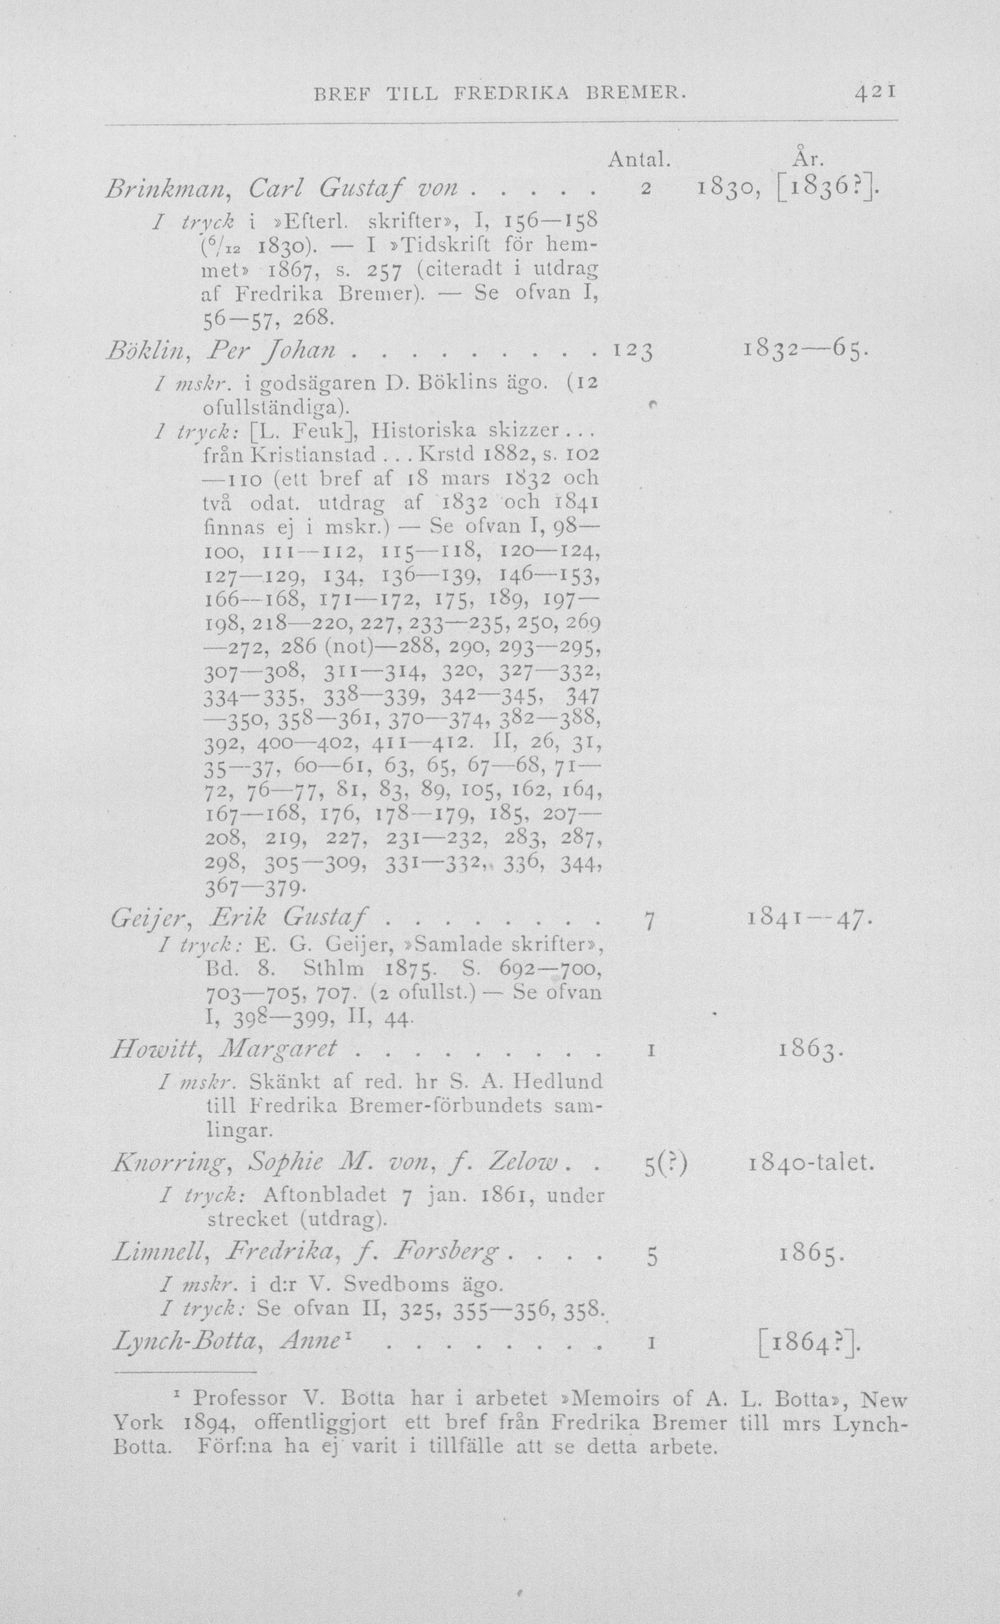 BREF TILL FREDRIKA BREMER. 421
Antal. År.
Brinkman, Carl Gustaf von . . . . . 2 1830, [1836?].
I tryck i »Efterl. skrifter», I, 156—158
(6/12 1830). — I »Tidskrift för hem-
met» 1867, s. 257 (citeradt i utdrag
af Fredrika Bremer). — Se ofvan I,
56—57, 268.
Böklin, Per Johan . . . . . . . . . 123 1832—65.
I mskr. i godsägaren D. Böklins ägo. (12
ofullständiga).
I tryck: [L. Feuk], Historiska skizzer . . .
från Kristianstad . . . Krstd 1882, s. 102
—110 (ett bref af 18 mars 1832 och
två odat. utdrag af 1832 och 1841
finnas ej i mskr.) — Se ofvan I, 98—
100, 111—112, 115—118, 120—124,
127—129, 134, 136—139, 146—153,
166—168, 171—172, 175, 189, 197—
198, 218—220, 227, 233—235, 250, 269
—272, 286 (not)—288, 290, 293—295,
307—308, 311—314, 320, 327—332,
334—335, 338—339, 342—345, 347
—350, 358—361, 370—374, 382—388,
392, 400—402, 411—412. II, 26, 31,
35—37, 60—61, 63, 65, 67—68, 71—
72, 76—77, 81, 83, 89, 105, 162, 164,
167—168, 176, 178—179, 185, 207—
208, 219, 227, 231—232, 283, 287,
298, 305—309, 331—332, 336, 344,
367—379.
Geijer, Erik Gustaf . . . . . . . . 7 1841—47.
I tryck: E. G. Geijer, »Samlade skrifter»,
Bd. 8. Sthlm 1875. S. 692—700,
703—705, 707. (2 ofullst.) — Se ofvan
I, 398—399, II, 44.
Howitt, Margaret . . . . . . . . . 1 1863.
I mskr. Skänkt af red. hr S. A. Hedlund
till Fredrika Bremer-förbundets sam-
lingar.
Knorring, Sophie M. von, f. Zelow . . 5(?) 1840-talet.
I tryck: Aftonbladet 7 jan. 1861, under
strecket (utdrag).
Limnell, Fredrika, f. Forsberg . . . . 5 1865.
I mskr. i d:r V. Svedboms ägo.
I tryck: Se ofvan II, 325, 355—356, 358.
Lynch-Botta, Anne¹ . . . . . . . . 1 [1864?].
¹ Professor V. Botta har i arbetet »Memoirs of A. L. Botta», New
York 1894, offentliggjort ett bref från Fredrika Bremer till mrs Lynch-
Botta. Förf:na ha ej varit i tillfälle att se detta arbete.